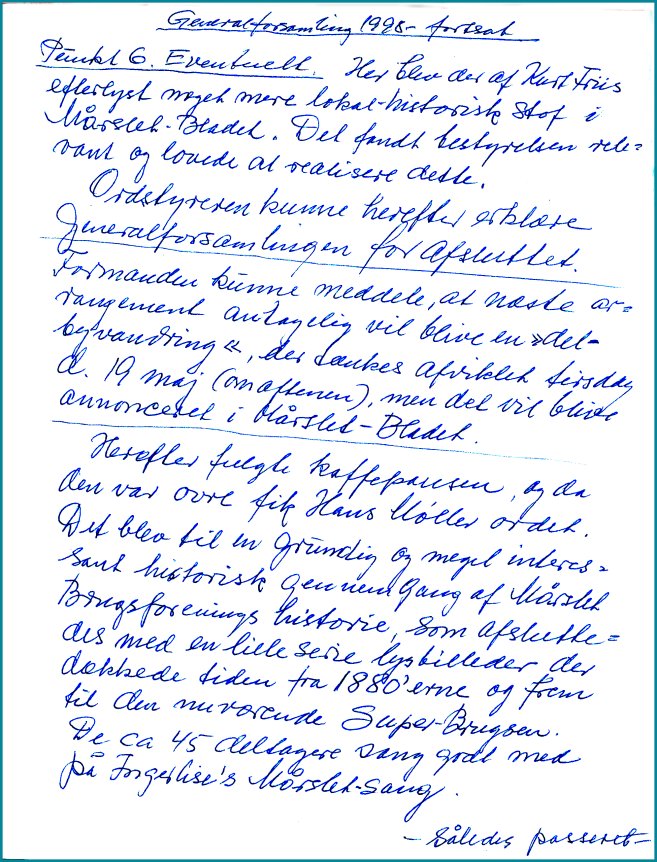 Generalforsamling 1998 - fortsat
Punkt 6. Eventuelt. Her blev der af Kurt Friis
efterlyst noget mere lokal-historisk stof i
Mårslet-Bladet. Det fandt bestyrelsen rele=
vant og lovede at realisere dette.
Ordstyreren kunne herefter erklære
generalforsamlingen for afsluttet.
Formanden kunne meddele, at næste ar=
rangement antagelig vil blive en »del-
byvandring«, der tænkes afviklet tirsdag
d. 19 maj (om aftenen), men det vil blive
annonceret i Mårslet-Bladet.
Herefter fulgte kaffepausen, og da
den var ovre fik Hans Møller ordet.
Det blev til en grundig og meget interes=
sant historisk gennemgang af Mårslet
Brugsforenings historie, som afslutte=
des med en lille serie lysbilleder der
dækkede tiden fra 1880'erne og frem
til den nuværende Super-Brugsen.
De ca 45 deltagere sang godt med
på Ingerlise's Mårslet-Sang.
- Således passeret -